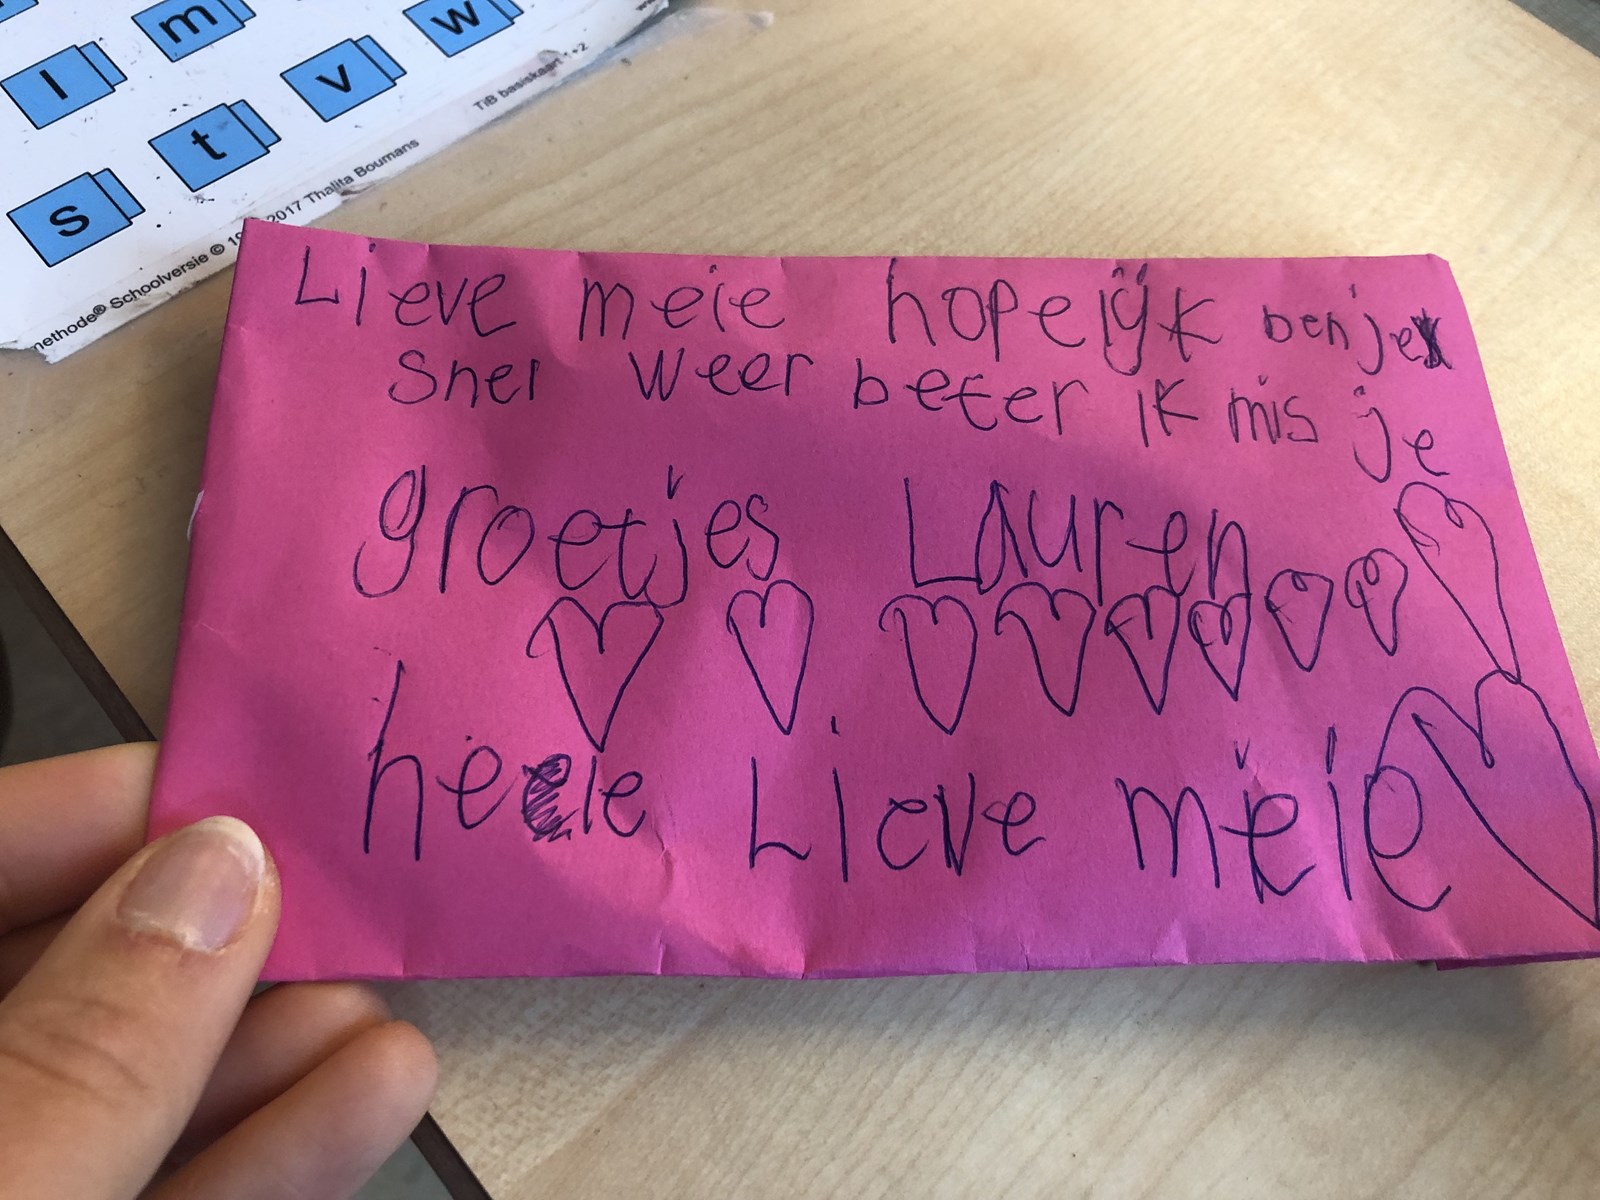 l
m
w
s
t
v
TiB basiskaart 1+2
methode® Schoolversie © 2017 Thalita Boumans
Lieve meie hopelijk ben je
snel weer beter ik mis je
groetjes Lauren
heele Lieve meie